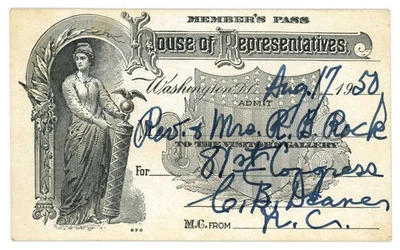 MEMBER'S PASS
House of Representatives,
Washington, D.C. Aug. 17 1950
ADMIT
Rev. & Mrs. R. B. Rock
TO THE VISITORS GALLERY
For 81st Congress
C. B. Deane
M.C. FROM N.C.
GPO